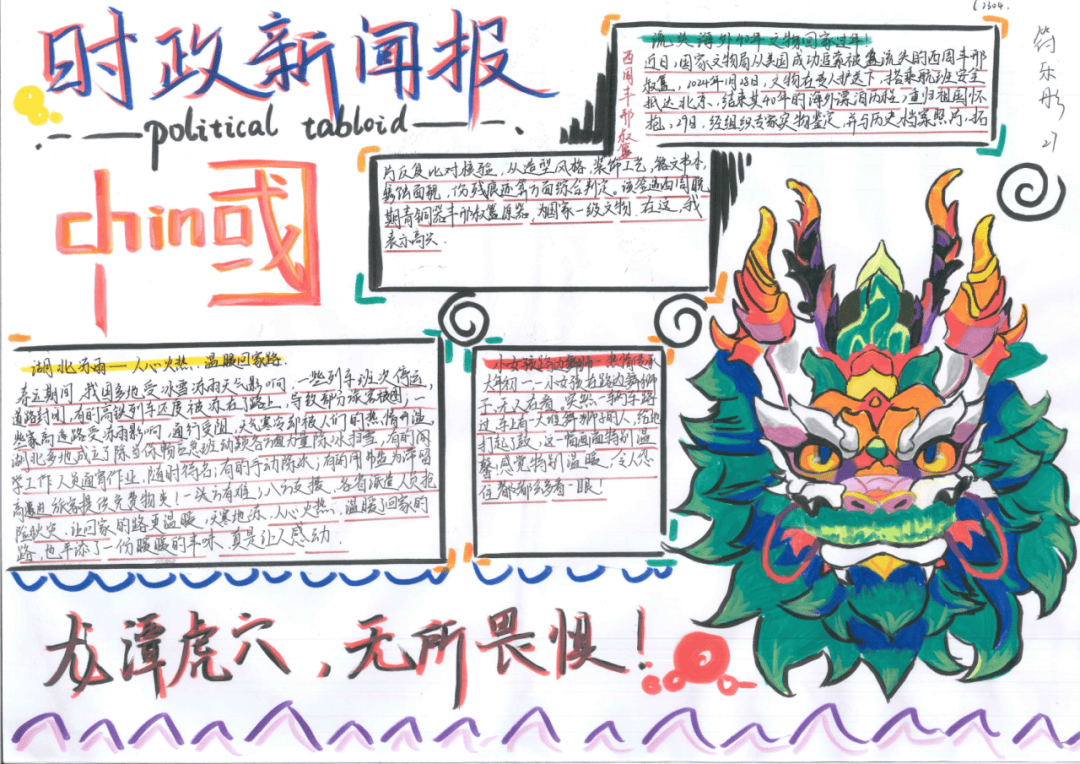 时政新闻报
political tabloid
chin国
C2304.
符乐彤
27
流失海外40年文物回家过年!
近日,国家文物局从美国成功追索被盗流失的西周丰邢
叔簋,2024年1月28日,文物在专人护送下,搭乘航班安全
抵达北京,结束其40年的海外漂泊历程,重归祖国怀
抱,29日,经组织专家实物鉴定,并与历史档案照片,拓
西周丰邢叔簋
片反复比对核验,从造型风格,装饰工艺,铭文书体,
锈蚀面貌,伤残痕迹等方面综合判定。该簋为西周晚
期青铜器丰邢叔簋原器,为国家一级文物.在这,我
表示高兴.
湖北冻雨——人心火热,温暖回家路.
春运期间,我国多地受冰雪冻雨天气影响,一些列车班次停运,
道路封闭,有的高铁列车还度被冻在了路上,导致部分旅客被困;一
些家高速路受冻雨影响,通行受阻,天气寒冷却被人们的热情升温,
湖北多地成立了除雪保畅应急班动员各方面力量除冰扫雪,有的网
学工作人员通宵作业,随时待命;有的手动除冰;有的用书盘为滞留
旅客提供免费物资!一方有难,八方支援,各省派遣人员抢
险救灾,让回家的路更温暖,天寒地冻,人心火热,温暖了回家的
路,也平添了一份暖暖的年味.真是让人感动.
小女孩路边舞狮——热情传承
大年初一,一小女孩在路边舞狮
子,无人在看。突然一辆车路
过,车上有一大班舞狮的人,给她
打起了鼓,这一幅画面特别温
馨!感觉特别温暖,令人忍
龙潭虎穴,无所畏惧!